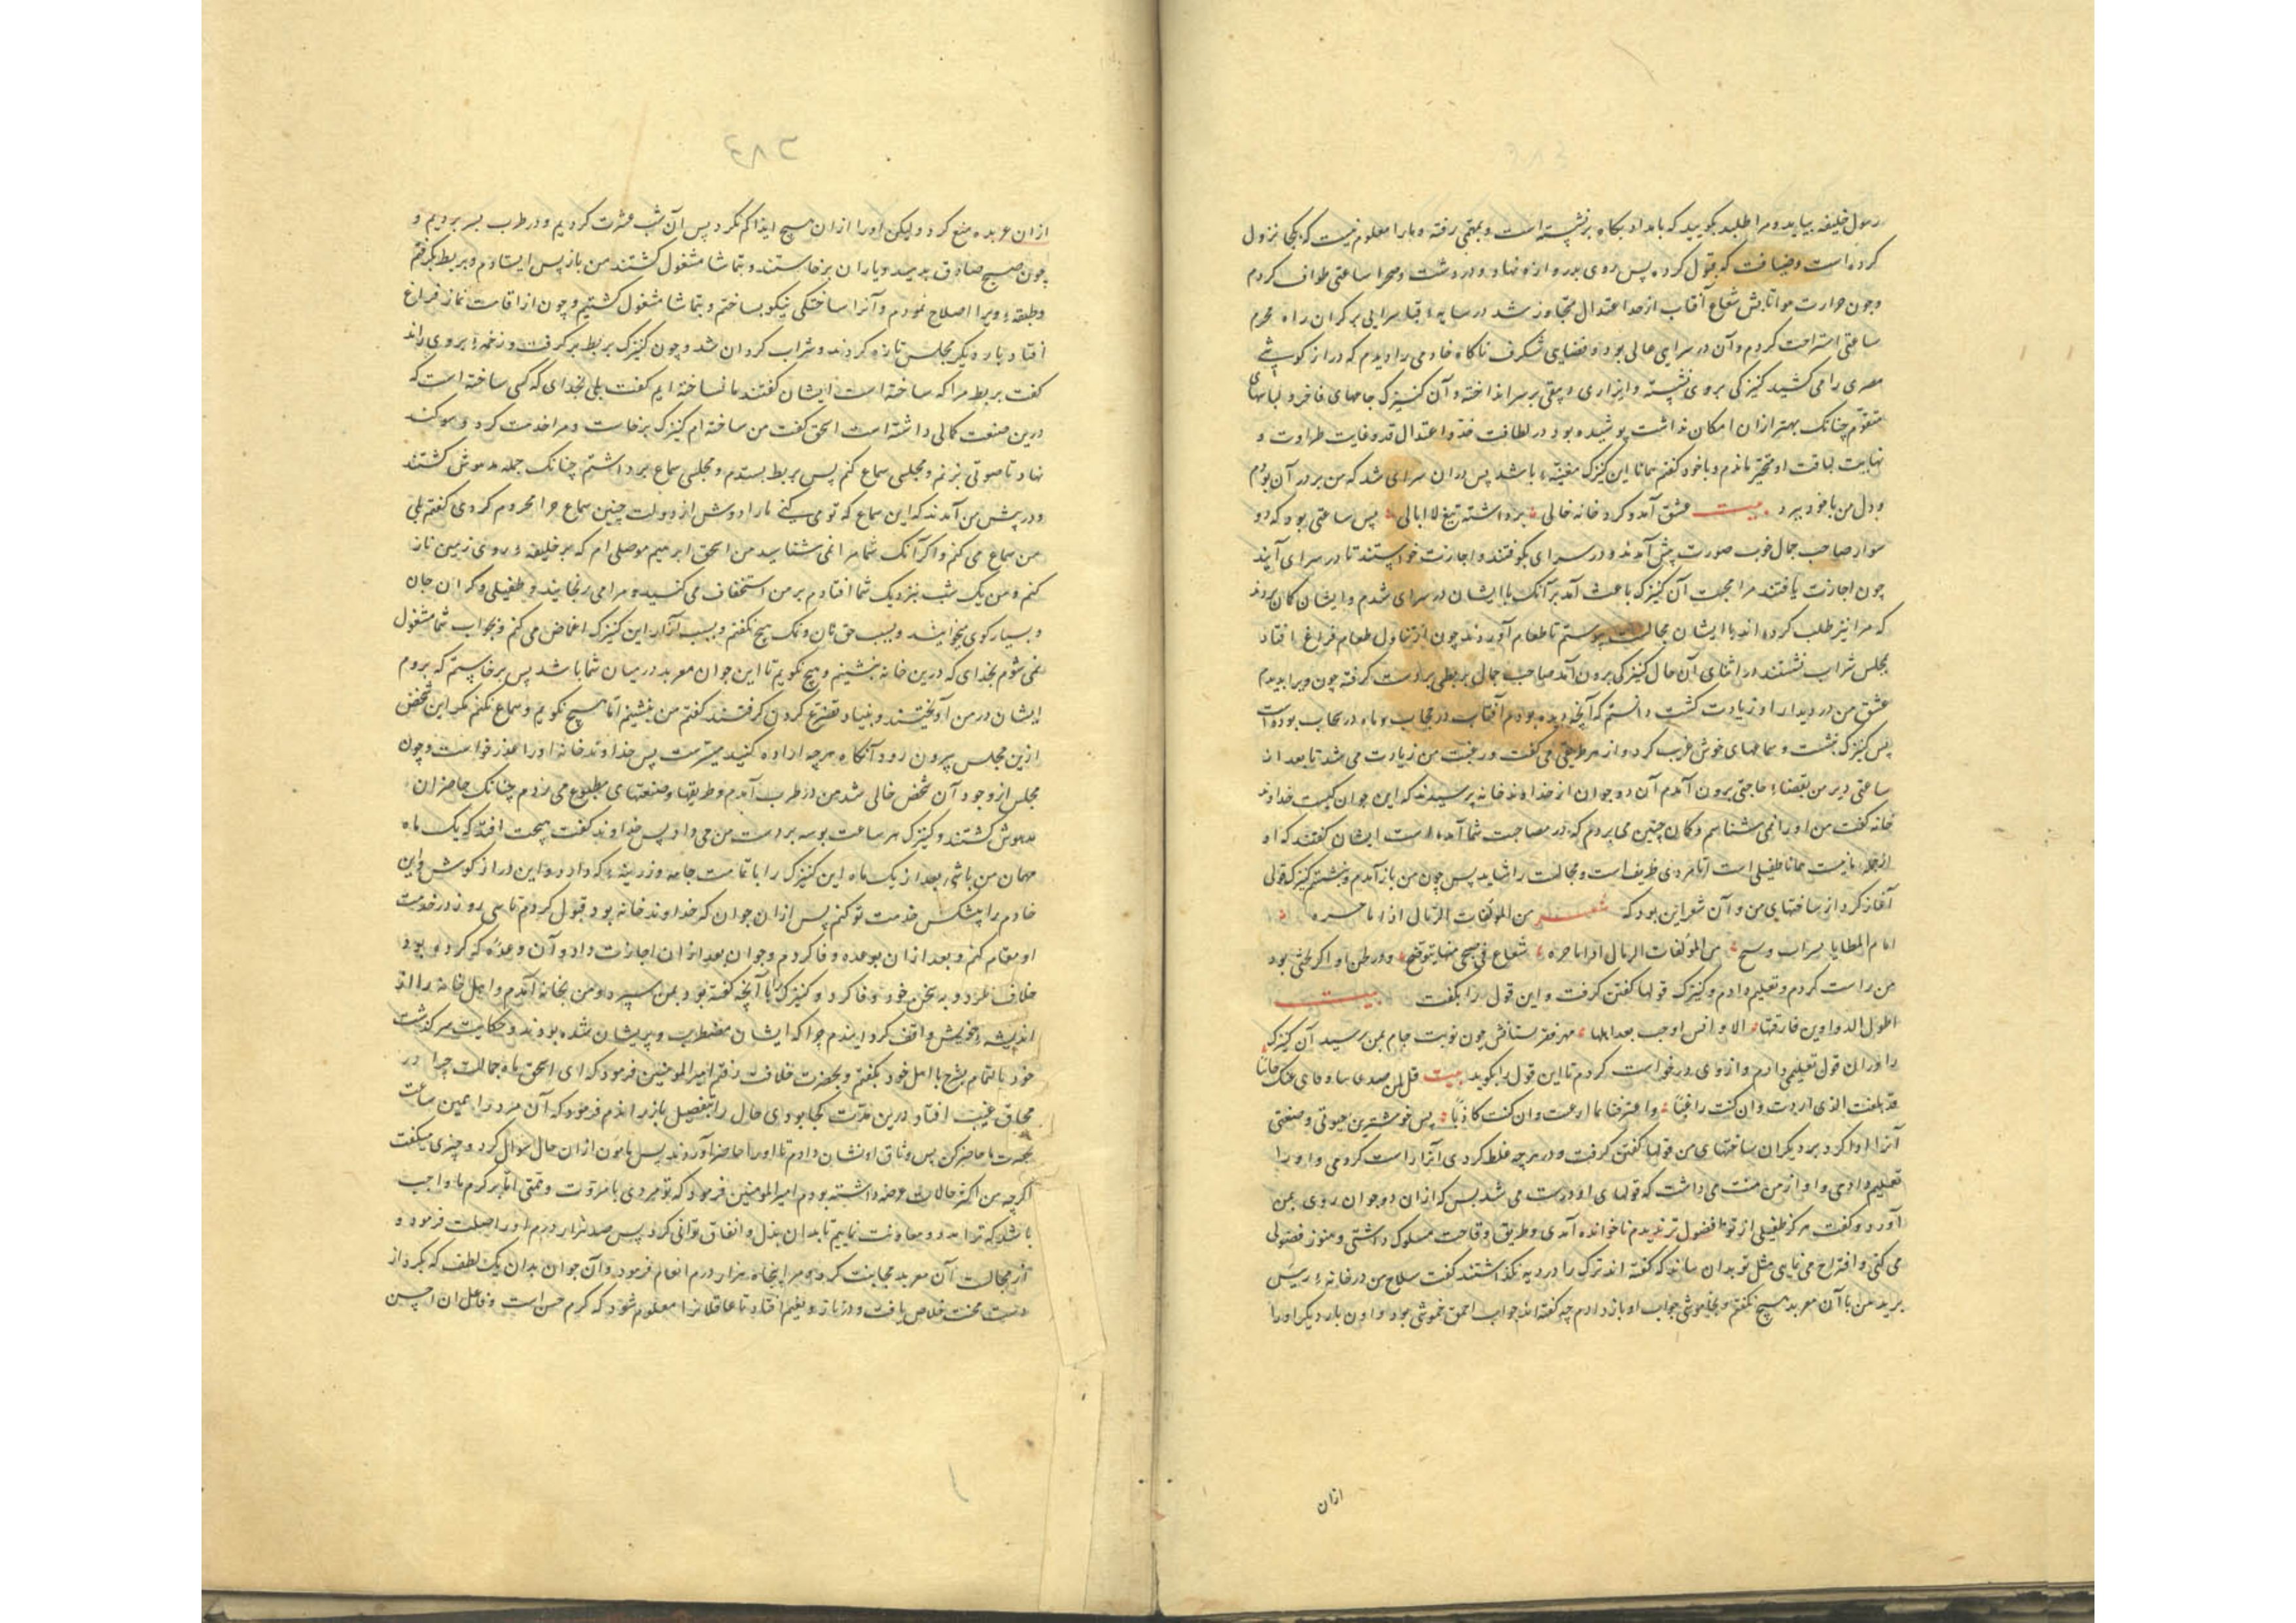 رسول خلیفه بیاید و مرا طلبد بگویید که بامداد بگاه برنشسته است و بمهمی رفته و ما را معلوم نیست که بکجا نزول
کرده است و ضیافت که قبول کرده پس روی بدروازه نهاد و در دشت و صحرا ساعتی طواف کردم
و چون حرارت هوا تابش شعاع آفتاب از حد اعتدال متجاوز شد در سایه قبا سرایی بر کران راه محرم
ساعتی استراحت کردم و آن در سرای عالی بود و فضای شگرف ناگاه خادمی را دیدم که دراز گوشی
مصری را می کشید کنیزکی بروی نشسته و ایزاری دبیقی بر سر انداخته و آن کنیزک جامهای فاخر و لباسهای
متقوم چنانک بهتر از آن امکان نداشت پوشیده بود در لطافت خد و اعتدال قد و غایت طراوت و
نهایت لباقت او متحیر ماندم و با خود گفتم همانا این کنیزک مغنیه باشد پس در آن سرای شد که من بر در آن بودم
و دل من با خود ببرد بیت عشق آمد و کرد خانه خالی برداشته تیغ لا ابالی پس ساعتی بود که دو
سوار صاحب جمال خوب صورت پیش آمدند و در سرای بکوفتند و اجازت خواستند تا در سرای آیند
چون اجازت یافتند مرا محبت آن کنیزک باعث آمد بر آنک با ایشان در سرای شدم و ایشان گمان بردند
که مرا نیز طلب کرده اند با ایشان مجالست پیوستم تا طعام آوردند چون از تناول طعام فراغ افتاد
مجلس شراب نشستند در اثنای آن حال کنیزکی برون آمد صاحب جمال بربطی بر دست گرفته چون ویرا بدیدم
عشق من در دیدار او زیادت گشت دانستم که آنچه دیده بودم آفتاب در حجاب بود ماه در سحاب بوده است
پس کنیزک بنشست و سماعهای خوش غریب کرد و از هر طریقی می گفت و رغبت من زیادت می شد تا بعد از
ساعتی دیر من بقضاء حاجتی برون آمدم آن دو جوان از خداوند خانه پرسیدند که این جوان کیست خداوند
خانه گفت من او را نمی شناسم و گمان چنین می بردم که در مصاحبت شما آمده است ایشان گفتند که او
از جمله ما نیست همانا طفیلی است اما مردی ظریف است و مجالست را شاید پس چون من باز آمدم و بنشستم کنیزک قولی
آغاز کرد از ساختهای من و آن شعر این بود که شعر من المؤلفات الرمال اذا ما حسره
امام المطایا بسراب وسح من المؤلفات الرمال اذا ما حره شعاع فی صحی منها یتوضح و در طن او اگر لحنی بود
من راست کردم و تعلیم دادم و کنیزک قولها گفتن گرفت و این قول را بگفت بیت
اطول الدواوین فارقتها الا وانس اوجب بعد اهلها چون نوبت جام بمن رسید آن کنیزک
را در آن قول تعلیمی دادم و از وی درخواست کردم تا این قول را بگوید بیت
قد بلغت الذی اردت وان کنت راغبا واعترفنا بما ادعت وان کنت کاذبا پس خوشترین صوتی و صنعتی
آنرا ادا کرد بر دیگران ساختهای من قولها گفتن گرفت و در هر چه غلط کردی آنرا راست کردمی و او را
تعلیم دادمی و او از من منت می داشت که قولهای او درست می شد پس که از آن دو جوان روی بمن
آورد و گفت هرگز طفیلی از تو فضول تر ندیدم ناخوانده آمدی و طریق وقاحت مسلوک داشتی و هنوز فضولی
می کنی و اقتراح می نمایی مثل تو بدان ماند که گفته اند ترک را در دیه نگذاشتند گفت سلاح من در خانه رییس
برید من با آن معربد هیچ نگفتم و بخاموشی جواب او باز دادم چه گفته اند جواب احمق خموشی بود و او ن بار دیگر او را
ازان
۲۸۴
از آن عربده منع کرد و لیکن او را از آن هیچ ایذا کم نکرد پس آن شب عشرت کردیم و در طرب بسر بردیم و
چون صبح صادق بدمید و یاران برخاستند و بتماشا مشغول گشتند من باز پس ایستادم و بربط بگرفتم
و طبقه ویرا اصلاح نمودم و آنرا ساختگی نیکو بساختم و بتماشا مشغول گشتیم و چون از اقامت نماز فراغ
افتاد بار دیگر مجلس تازه کردند و شراب گردان شد و چون کنیزک بربط بر گرفت و زخمه بروی راند
گفت بربط مرا که ساخته است ایشان گفتند ما نساخته ایم گفت بلی بخدای که کسی ساخته است که
درین صنعت کمالی داشته است اسحق گفت من ساخته ام کنیزک برخاست و مرا خدمت کرد و سوگند
نهاد تا صوتی بزنم و مجلسی سماع کنم پس بربط بستدم و مجلسی سماع برداشتم چنانک جمله مدهوش گشتند
و در پیش من آمدند که این سماع که تو می کنی ما را دوش از دولت چنین سماع چرا محروم کردی گفتم بلی
من سماع می کنم و اگر آنک شما مرا نمی شناسید من اسحق ابرهیم موصلی ام که بر خلیفه روی زمین ناز
کنم و من یک شب بنزدیک شما افتادم بر من استخفاف می کنید و مرا می رنجانید و طفیلی و گران جان
و بسیار گوی می خوانید و بسبب حق نان و نمک هیچ نگفتم و بسبب آزار این کنیزک اغماض می کنم و بجواب شما مشغول
نمی شوم بخدای که درین خانه بنشینم و هیچ نگویم تا این جوان معربد در میان شما باشد پس برخاستم که بروم
ایشان در من آویختند و بنیاد تضرع کردن گرفتند گفتم من بنشینم اما هیچ نگویم و سماع نکنم مگر این شخص
ازین مجلس بیرون رود آنگاه هر چه اراده کنید میسرست پس خداوند خانه او را عذر خواست و چون
مجلس از وجود آن شخص خالی شد من در طرب آمدم و طریقها و صنعتهای مطبوع می زدم چنانک حاضران
مدهوش گشتند و کنیزک هر ساعت بوسه بر دست من می داد پس خداوند گفت هیچت افتد که یک ماه
مهمان من باشی بعد از یک ماه این کنیزک را با تمامت جامه و زرینه که دارد و این دراز گوش و این
خادم را پیشکش خدمت تو کنم پس از آن جوان که خداوند خانه بود قبول کردم تا سی روز در خدمت
او مقام کنم و بعد از آن بوعده وفا کردم و جوان بعد از آن اجازت داد و آن وعده که کرده بود
خلاف نکرد و بر سخن خود وفا کرد و کنیزک را با آنچه گفته بود بمن سپرد و من بخانه آمدم و اهل خانه را از
اندیشه خویش واقف گردانیدم چرا که ایشان مضطرب و پریشان شده بودند و حکایت سر گذشت
خود بالتمام بشرح با اهل خود بگفتم و بحضرت خلافت رفتم امیر المومنین فرمود که ای اسحق ماه جمالت چرا در
محاق غیبت افتاد درین مدت کجا بودی حال را بتفصیل باز راندم فرمود که آن مرد را همین ساعت
بحضرت ما حاضر کن پس وثاق او نشان دادم تا او را حاضر آوردند پس مامون از آن حال سوال کرد و چیزی میگفت
اگرچه من اکثر حالات عرضه داشته بودم امیر المومنین فرمود که تو مردی با مروت و همتی اما بر کرم ما واجب
باشد که ترا مدد و معاونت نماییم تا بدان بذل و انفاق توانی کرد پس صد هزار درم او را صلت فرمود و
از مجالست آن معربد مجانبت کردی مرا پنجاه هزار درم انعام فرمود و آن جوان بدان یک لطف که بکرد از
دست محنت خلاص یافت و در ناز و نعیم افتاد تا عاقلانرا معلوم شود که کرم حسن است و فاعل آن احسن